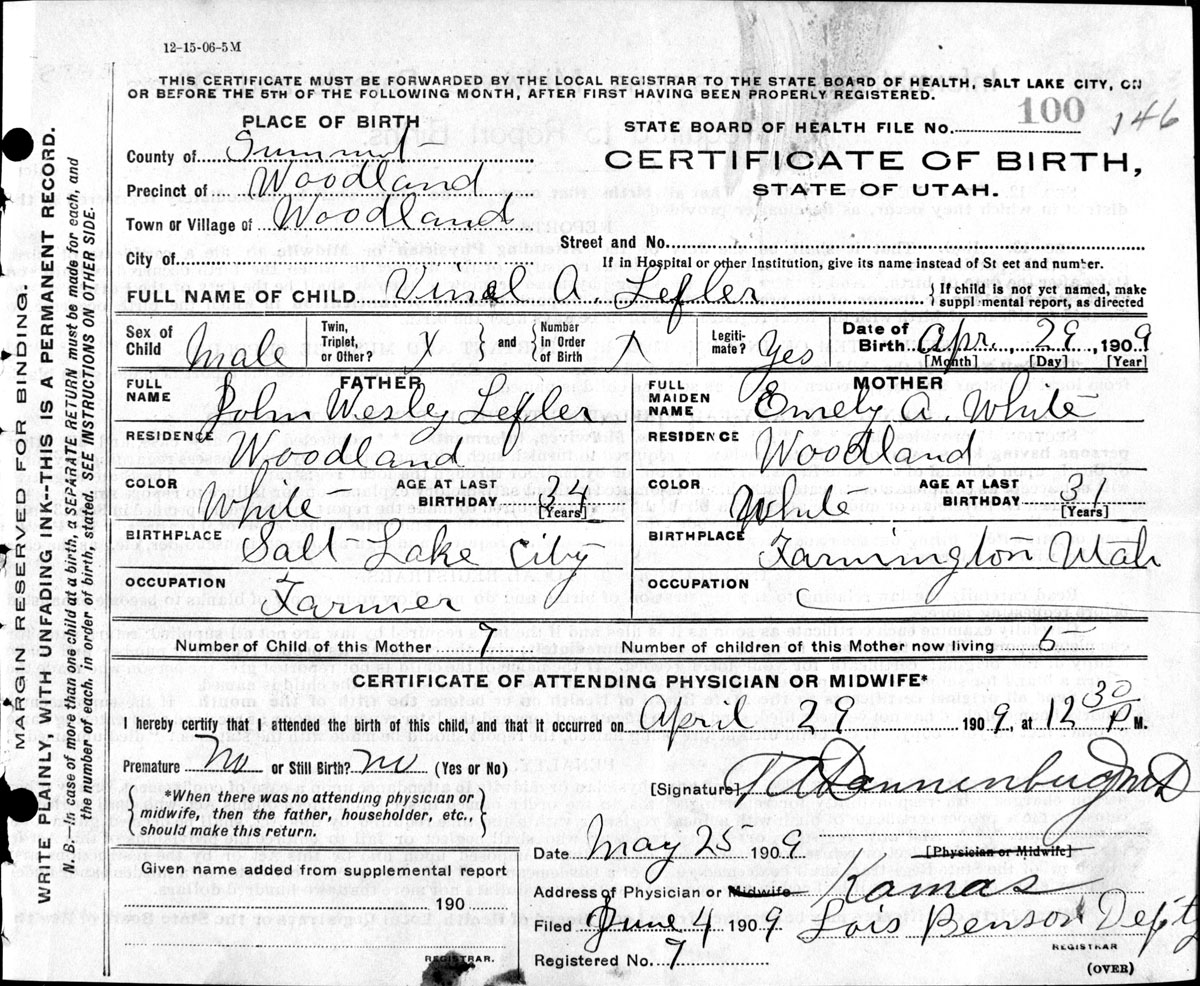 12-15-06-5M
THIS CERTIFICATE MUST BE FORWARDED BY THE LOCAL REGISTRAR TO THE STATE BOARD OF HEALTH, SALT LAKE CITY, ON
OR BEFORE THE 5TH OF THE FOLLOWING MONTH, AFTER FIRST HAVING BEEN PROPERLY REGISTERED.
PLACE OF BIRTH
STATE BOARD OF HEALTH FILE No. 100 146
County of Summit
CERTIFICATE OF BIRTH,
Precinct of Woodland
STATE OF UTAH.
Town or Village of Woodland
Street and No.
City of
If in Hospital or other Institution, give its name instead of St eet and number.
FULL NAME OF CHILD Vinal A. Lefler { If child is not yet named, make
suppl mental report, as directed
Sex of Child Male Twin, Triplet, or Other? X } and { Number in Order of Birth X Legiti-mate? Yes Date of Birth Apr 29, 1909
[Month] [Day] [Year]
FATHER
FULL NAME John Wesley Lefler
MOTHER
FULL MAIDEN NAME Emely A. White
RESIDENCE Woodland
RESIDENCE Woodland
COLOR White AGE AT LAST BIRTHDAY 34 [Years]
COLOR White AGE AT LAST BIRTHDAY 31 [Years]
BIRTHPLACE Salt Lake City
BIRTHPLACE Farmington Utah
OCCUPATION Farmer
OCCUPATION
Number of Child of this Mother 7 Number of children of this Mother now living 5
CERTIFICATE OF ATTENDING PHYSICIAN OR MIDWIFE*
I hereby certify that I attended the birth of this child, and that it occurred on April 29 1909, at 12 30 P M.
Premature No or Still Birth? No (Yes or No)
[Signature] Dannenburg MD
{ *When there was no attending physician or
midwife, then the father, householder, etc.,
should make this return. }
[Physician or Midwife]
Date May 25 1909
Given name added from supplemental report
190
Address of Physician or Midwife Kamas
Filed June 4 1909 Lois Benson Depity
REGISTRAR.
REGISTRAR
Registered No. 7
(OVER)
MARGIN RESERVED FOR BINDING.
WRITE PLAINLY, WITH UNFADING INK--THIS IS A PERMANENT RECORD.
N. B.—In case of more than one child at a birth, a SEPARATE RETURN must be made for each, and
the number of each, in order of birth, stated. SEE INSTRUCTIONS ON OTHER SIDE.